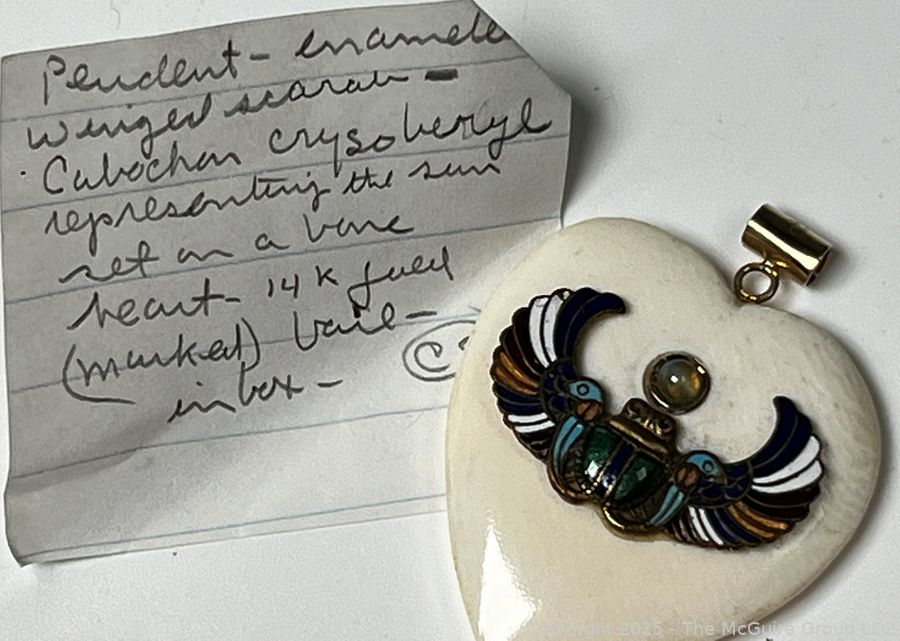 Pendent - enamele
winged scarab -
Cabochon crysoberyl
representing the sun
set on a bone
heart - 14K
(marked) bail -
in box -
Copyright 2025 - The McGuire Group LLC